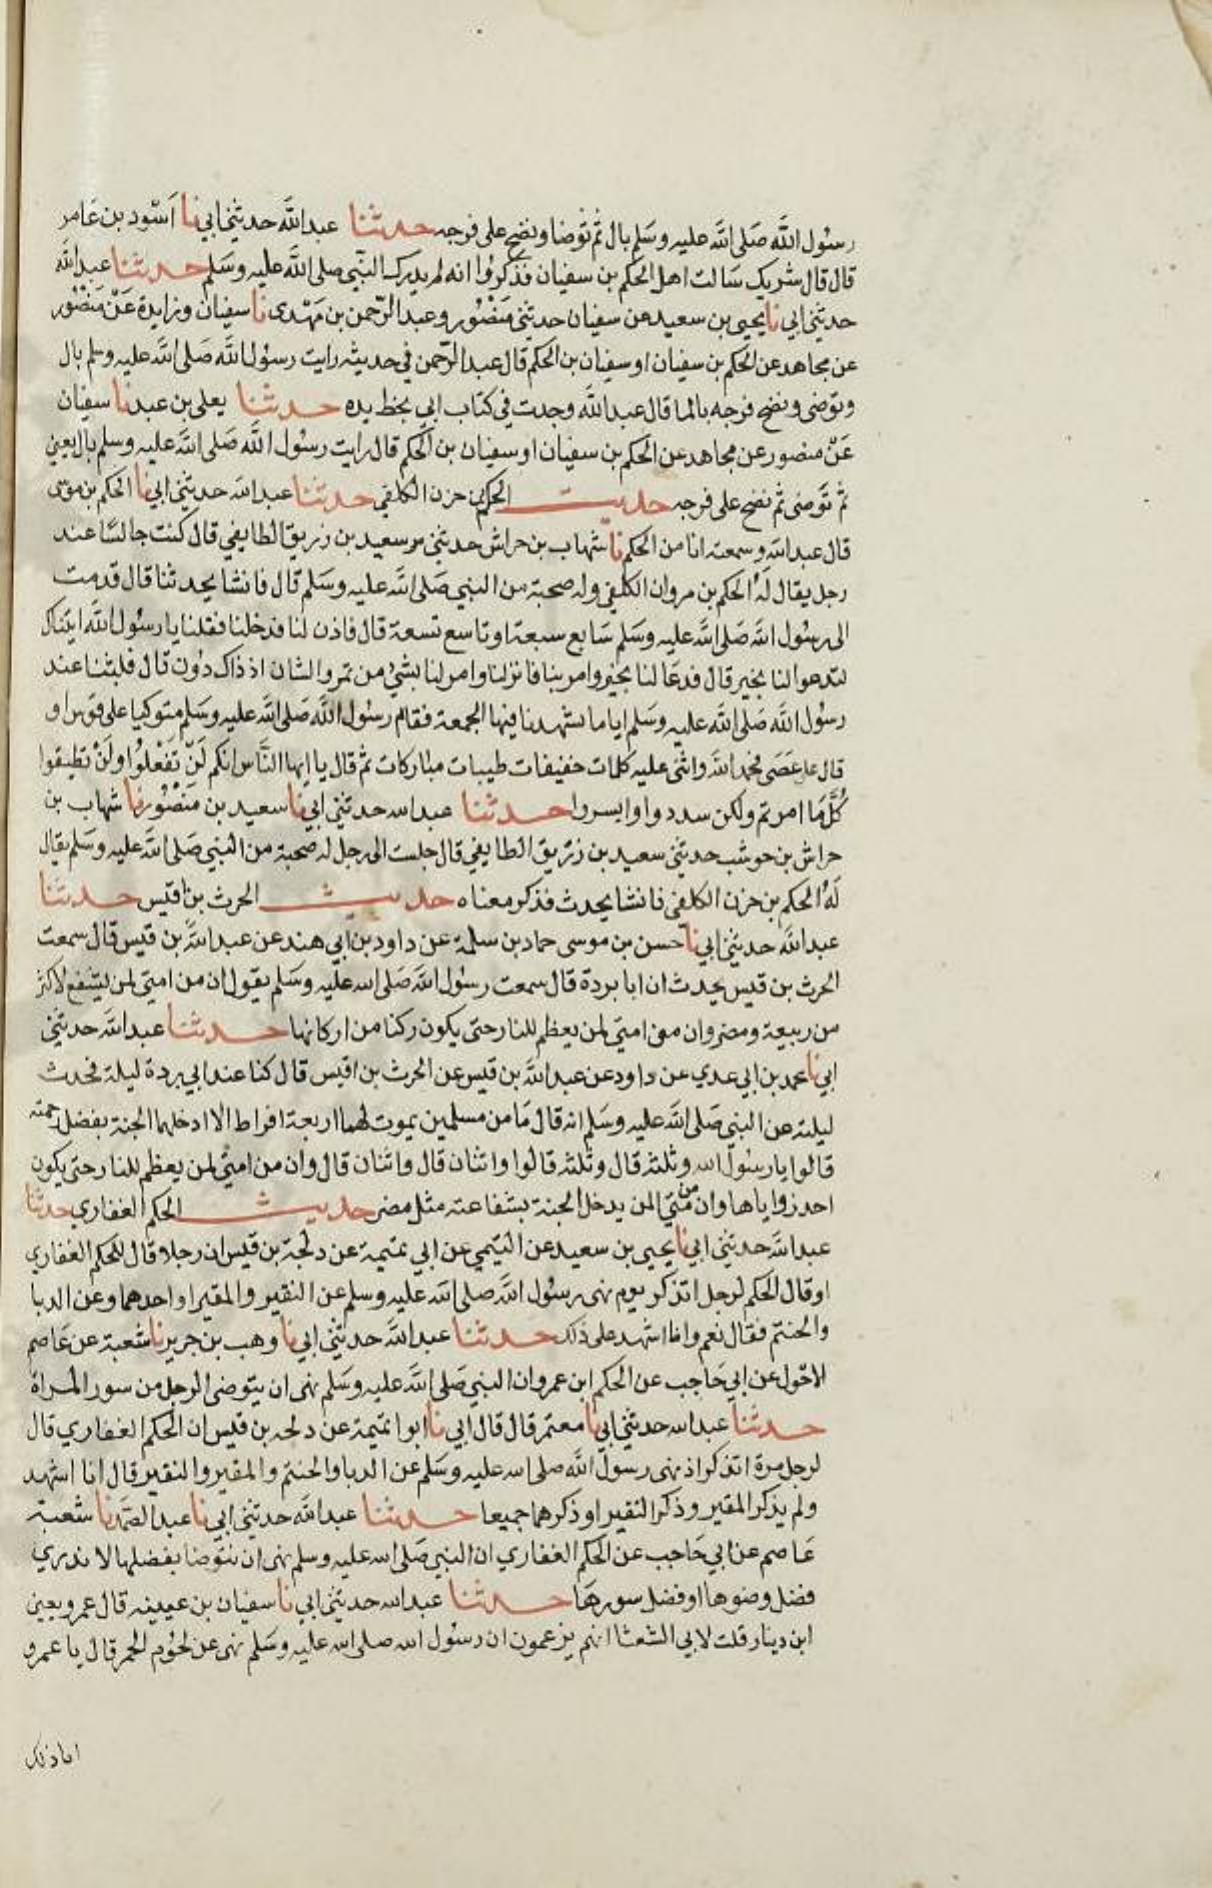 رسول الله صلى الله عليه وسلم بال ثم توضا ونضح على فرجه حدثنا عبد الله حدثني ابي نا اسود بن عامر
قال قال شريك سالت اهل الحكم بن سفيان فذكروا انه لم يدرك النبي صلى الله عليه وسلم حدثنا عبد الله
حدثني ابي نا يحيى بن سعيد عن سفيان حدثني منصور وعبد الرحمن بن مهدى نا سفيان وزايدة عن منصور
عن مجاهد عن الحكم بن سفيان او سفيان بن الحكم قال عبد الرحمن في حديثه رايت رسول الله صلى الله عليه وسلم بال
وتوضى ونضح فرجه بالما قال عبد الله وجدت في كتاب ابي بخط يده حدثنا يعلى بن عبيد نا سفيان
عن منصور عن مجاهد عن الحكم بن سفيان او سفيان بن الحكم قال رايت رسول الله صلى الله عليه وسلم بال يعني
ثم توضى ثم نضح على فرجه حديث الحكم بن حزن الكلفي حدثنا عبد الله حدثني ابي نا الحكم بن موسى
قال عبد الله وسمعته انا من الحكم نا شهاب بن خراش حدثني سعيد بن زريق الطايفي قال كنت جالسا عند
رجل يقال له الحكم بن مروان الكلفي وله صحبة من النبي صلى الله عليه وسلم قال فانشا يحدثنا قال قدمت
الى رسول الله صلى الله عليه وسلم سابع سبعة او تاسع تسعة قال فاذن لنا فدخلنا فقلنا يا رسول الله اتيناك
لتدعوا لنا بخير قال فدعا لنا بخير وامر بنا فانزلنا وامر لنا بشئ من تمر والشان اذ ذاك دون قال فلبثنا عند
رسول الله صلى الله عليه وسلم اياما شهدنا فيها الجمعة فقام رسول الله صلى الله عليه وسلم متوكيا على قوس او
قال على عصى فحمد الله واثنى عليه كلمات خفيفات طيبات مباركات ثم قال يا ايها الناس انكم لن تفعلوا ولن تطيقوا
كلما امرتم ولكن سددوا وابسروا حدثنا عبد الله حدثني ابي نا سعيد بن منصور نا شهاب بن
خراش بن حوشب حدثني سعيد بن زريق الطايفي قال جلست الى رجل له صحبة من النبي صلى الله عليه وسلم يقال
له الحكم بن حزن الكلفي فانشا يحدث فذكر معناه حديث الحرث بن اقيس حدثنا
عبد الله حدثني ابي نا حسن بن موسى حماد بن سلمة عن داود بن ابي هند عن عبد الله بن قيس قال سمعت
الحرث بن قيس يحدث ان ابا بردة قال سمعت رسول الله صلى الله عليه وسلم يقول ان من امتي لمن يشفع لاكثر
من ربيعة ومضر وان من امتي لمن يعظم للنار حتى يكون ركنا من اركانها حدثنا عبد الله حدثني
ابي نا محمد بن ابي عدي عن داود عن عبد الله بن قيس عن الحرث بن اقيس قال كنا عند ابي بردة ليلة فحدث
ليلته عن النبي صلى الله عليه وسلم انه قال ما من مسلمين يموت لهما اربعة افراط الا ادخلهما الجنة بفضل رحمته
قالوا يا رسول الله وثلثه قال وثلثه قالوا واثنان قال واثنان قال وان من امتي لمن يعظم للنار حتى يكون
احد زواياها وان من امتي لمن يدخل الجنة بشفاعته مثل مضر حديث الحكم الغفاري حدثنا
عبد الله حدثني ابي نا يحيى بن سعيد عن التيمي عن ابي تميمة عن دلجة بن قيس ان رجلا قال للحكم الغفاري
او قال الحكم لرجل اتذكر يوم نهى رسول الله صلى الله عليه وسلم عن النقير والمقير او احدهما وعن الدبا
والحنتم فقال نعم وانا اشهد على ذلك حدثنا عبد الله حدثني ابي نا وهب بن جرير نا شعبة عن عاصم
الاحول عن ابي حاجب عن الحكم ابن عمرو ان النبي صلى الله عليه وسلم نهى ان يتوضى الرجل من سور المراة
حدثنا عبد الله حدثني ابي نا معتمر قال قال ابي نا ابوا تميمة عن دلجه بن قيس ان الحكم الغفاري قال
لرجل مرة اتذكر اذ نهى رسول الله صلى الله عليه وسلم عن الدبا والحنتم والمقير والنقير قال انا اشهد
ولم يذكر المقير وذكر النقير او ذكرهما جميعا حدثنا عبد الله حدثني ابي نا عبد الصمد نا شعبة
عاصم عن ابي حاجب عن الحكم الغفاري ان النبي صلى الله عليه وسلم نهى ان يتوضا بفضلها لا ندري
فضل وضوها او فضل سورها حدثنا عبد الله حدثني ابي نا سفيان بن عيينه قال عمرو يعني
ابن دينار قلت لابي الشعثا انهم يزعمون ان رسول الله صلى الله عليه وسلم نهى عن لحوم الحمر قال يا عمرو
ابا ذلك